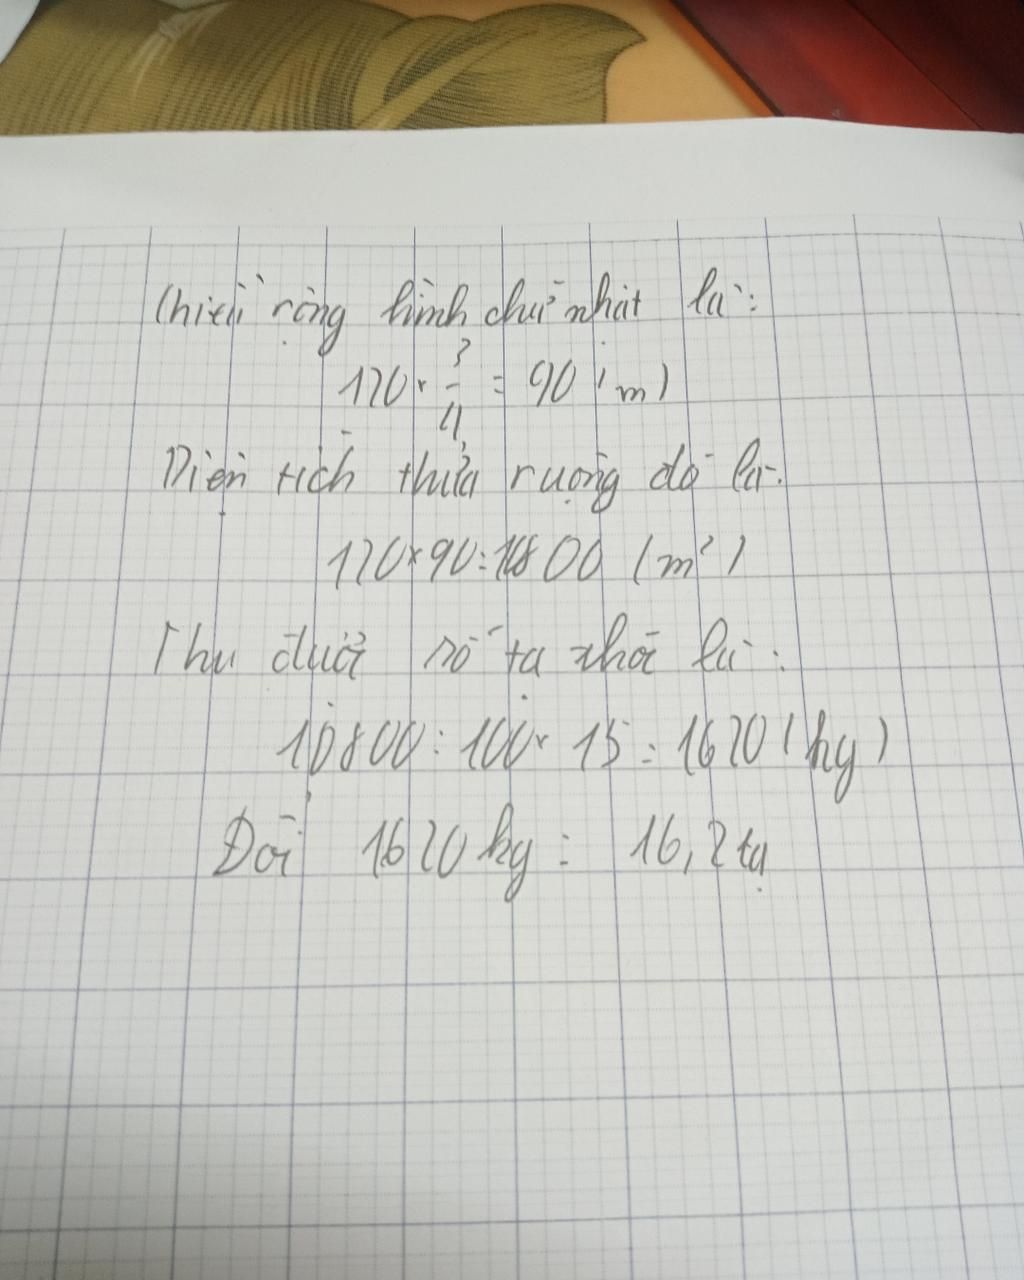 Chiều rộng hình chữ nhật là:
120 × 3/4 = 90 (m)
Diện tích thửa ruộng đó là:
120 × 90 = 10800 (m²)
Thu được số tạ thóc là:
10800 : 100 × 15 = 1620 (kg)
Đổi 1620 kg = 16,2 tạ